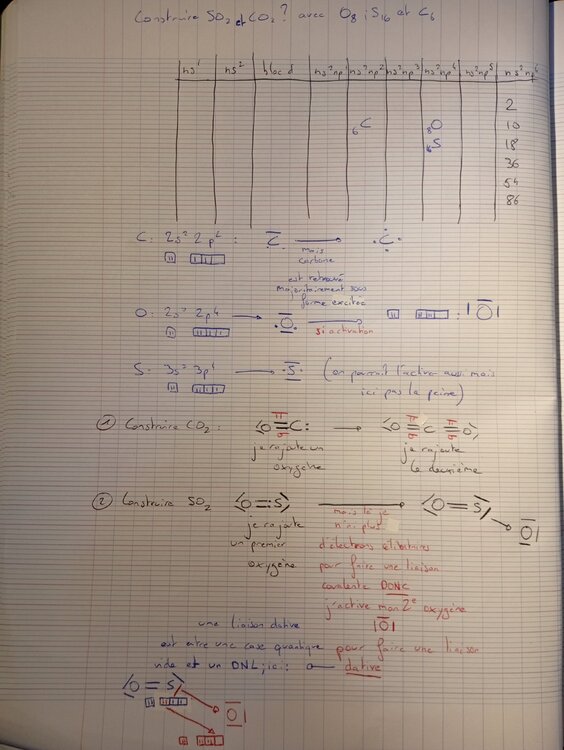 Construire SO2 et CO2 ? avec O8 ; S16 et C6
ns1 ns2 bloc d ns2np1 ns2np2 ns2np3 ns2np4 ns2np5 ns2np6
2
6C 8O 10
16S 18
36
54
86
C : 2s2 2p2 : C → C
mais
carbone
est retrouvé
majoritairement sous
forme excitée
O : 2s2 2p4 → O → : |O|
si activation
S : 3s2 3p4 → S (on pourrait l'activer aussi mais
ici pas la peine)
① Construire CO2 : O = C : → O = C = O
π π π
σ σ σ
je rajoute un je rajoute
oxygène le deuxième
② Construire SO2 O = S → O = S → O|
je rajoute mais là je
un premier n'ai plus
oxygène d'électrons célibataires
pour faire une liaison
covalente DONC
j'active mon 2e oxygène
une liaison dative |O|
est entre une case quantique pour faire une liaison
vide et un DNL ; ici : dative
O = S
O|